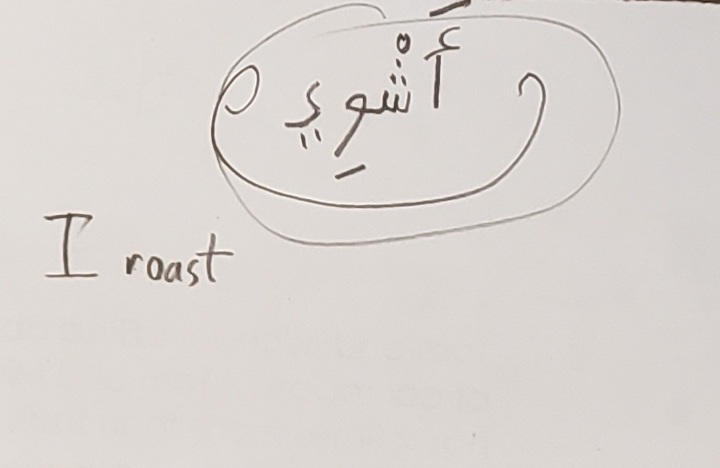 أَشْوِي
I roast